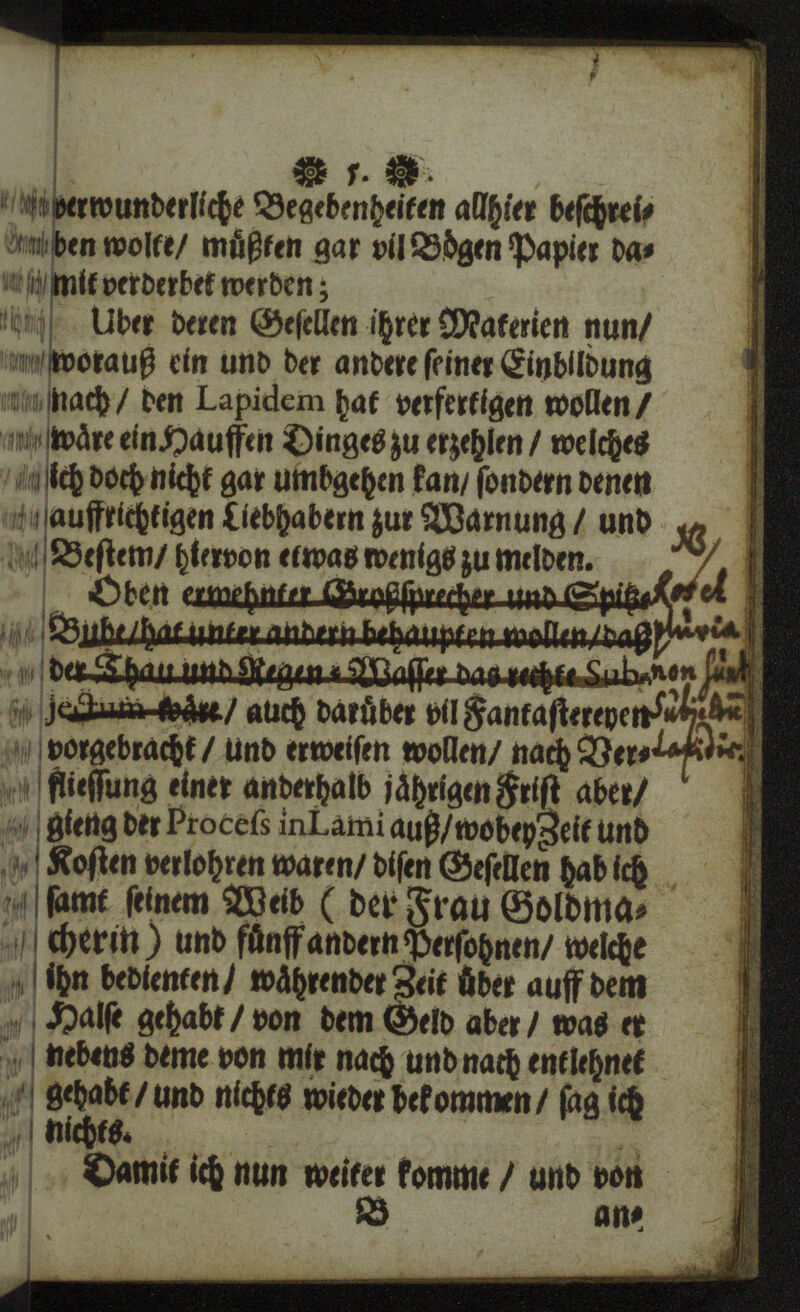 5.
verwunderliche Begebenheiten allhier beschrei⸗
ben wolte/ müßten gar vil Bögen Papier da⸗
mit verderbet werden;
Uber deren Gesellen ihrer Materien nun/
worauß ein und der andere seiner Einbildung
nach / den Lapidem hat verfertigen wollen /
wäre ein Hauffen Dinges zu erzehlen / welches
ich doch nicht gar umbgehen kan/ sondern denen
auffrichtigen Liebhabern zur Warnung / und
Bestem/ hiervon etwas wenigs zu melden.
Oben erwehnter Großsprecher und Spitz⸗
Bube/ hat unter andern behaupten wollen/ daß
der Thau und Regen⸗Wasser das rechte Sub⸗
jectum wäre/ auch darüber vil Fantastereyen
vorgebracht / und erweisen wollen/ nach Ver⸗
fliessung einer anderhalb jährigen Frist aber/
gieng der Process in Lami auß/ wobey Zeit und
Kosten verlohren waren/ disen Gesellen hab ich
samt seinem Weib ( der Frau Goldma⸗
cherin ) und fünff andern Persohnen/ welche
ihn bedienten / währender Zeit über auff dem
Halse gehabt / von dem Geld aber / was er
nebens deme von mir nach und nach entlehnet
gehabt / und nichts wieder bekommen / sag ich
nichts.
Damit ich nun weiter komme / und von
B an⸗